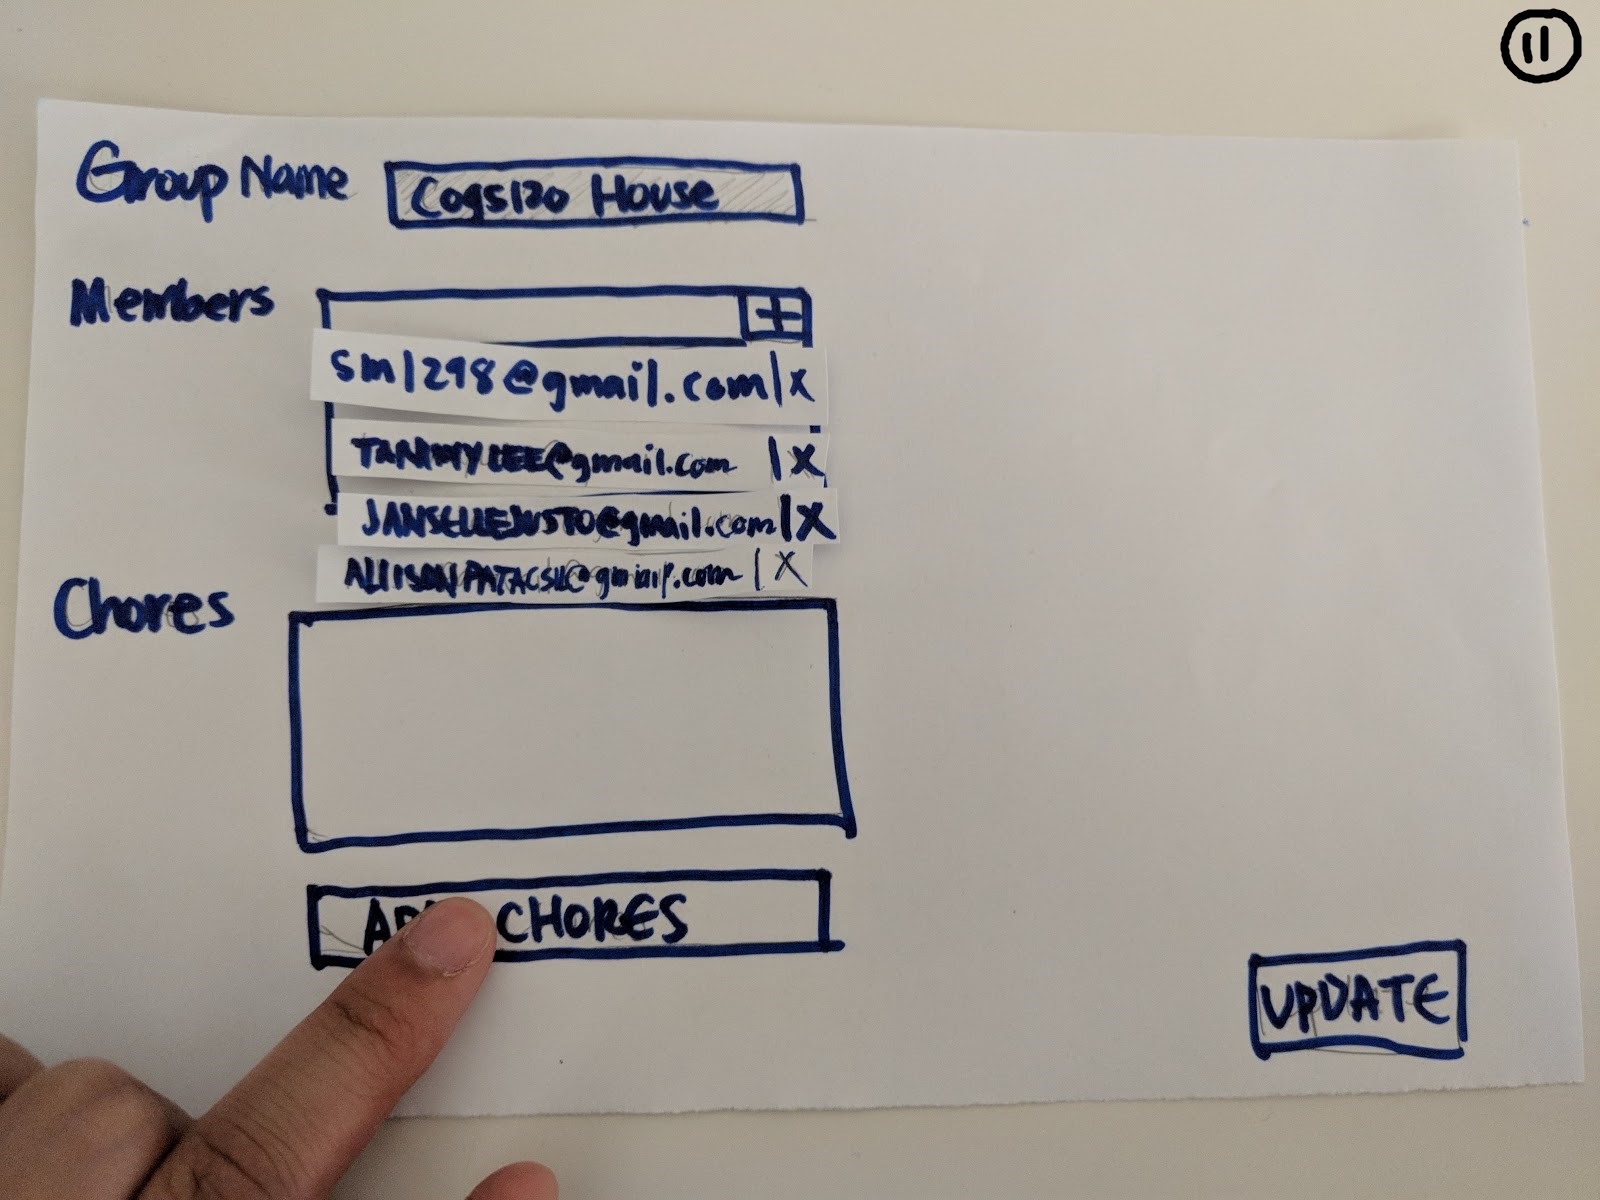 Group Name Cogs120 House
Members +
sm1298@gmail.com|x
TAMMYLEE@gmail.com |X
JANSELLEJUSTO@gmail.com|X
@gmail.com |X
Chores
CHORES
UPDATE